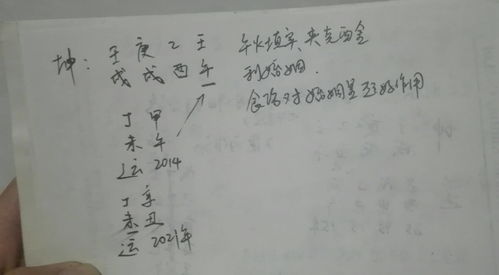 坤：壬庚乙壬
戌戌酉午
午火填实，夹克酉金
利婚姻．
食伤对婚姻星起好作用
丁甲
未午
运 2014
丁辛
未丑
运 2021年